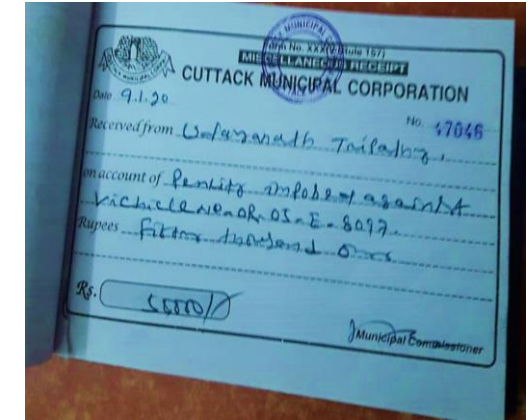 MUNICIPAL
Form No. XXX(V Rule 157)
MISCELLANEOUS RECEIPT
CUTTACK MUNICIPAL CORPORATION
Date 9.1.20
No. 47046
Received from Udayanath Tripathy.
on account of Penlity impobed against
Vichicle No OR. 05-E-8097.
Rupees Fifty thousand Only
Rs. 50000/
Municipal Commissioner